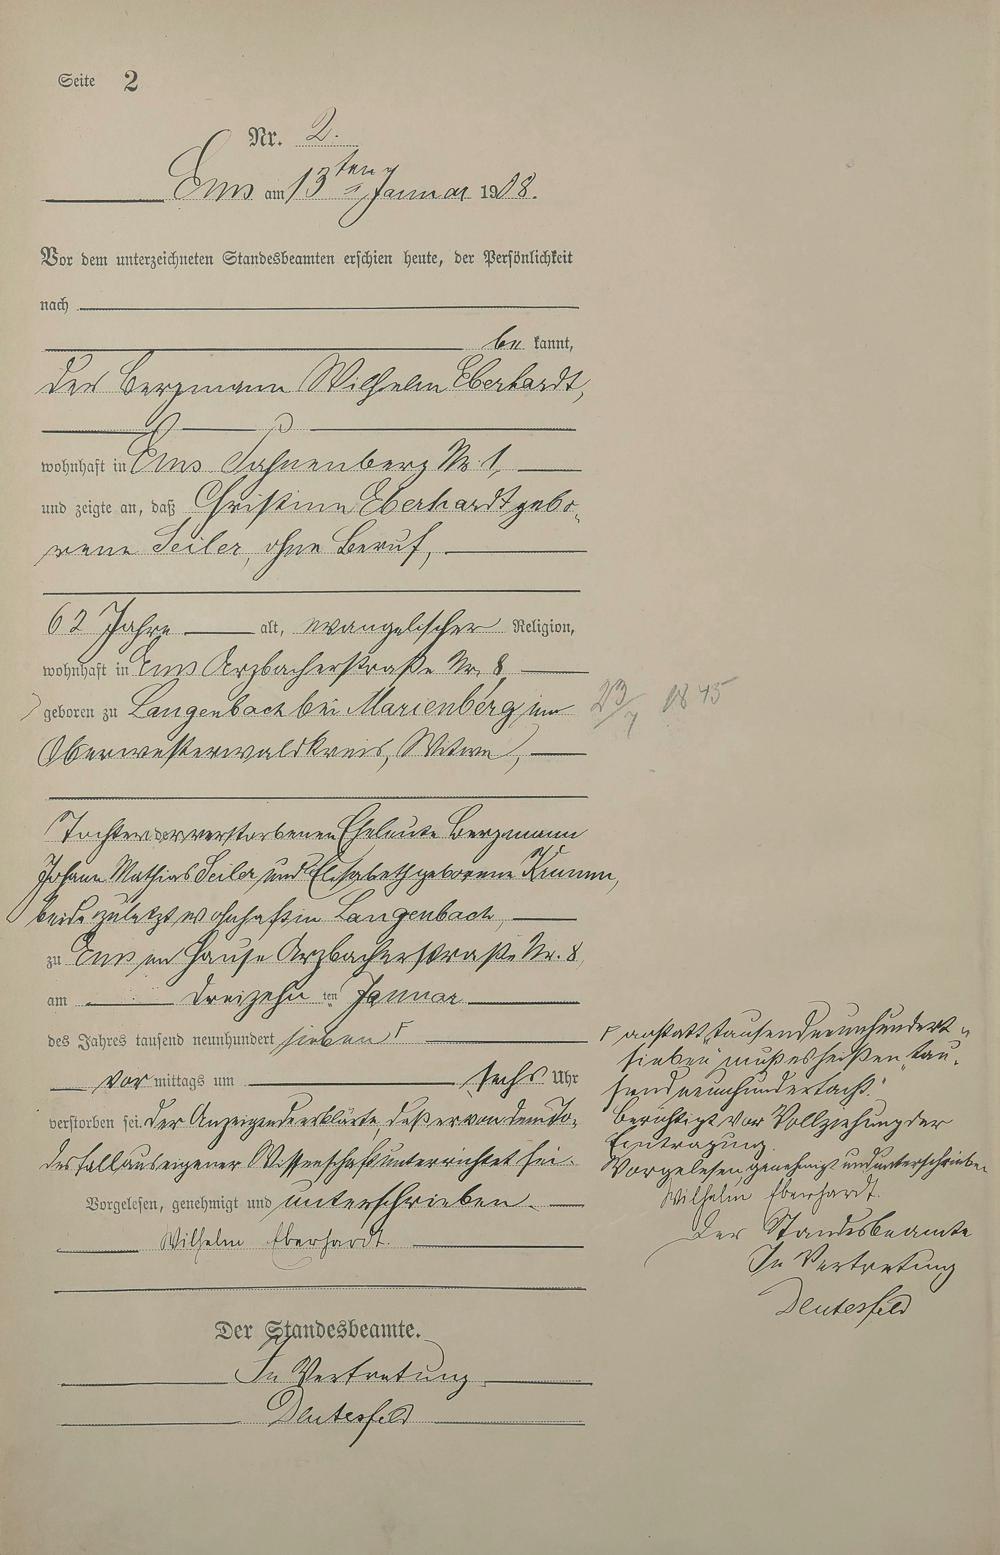 Seite 2
Nr. 2.
Ems am 13ten Januar 1908.
Vor dem unterzeichneten Standesbeamten erschien heute, der Persönlichkeit
nach
be kannt,
der Bergmann Wilhelm Eberhardt,
wohnhaft in Ems Nr. 1,
und zeigte an, daß Christine Eberhardt gebo-
rene Seiler, ohne Beruf,
62 Jahre alt, evangelischer Religion,
wohnhaft in Ems Arzbacherstraße Nr. 8
geboren zu Langenbach bei Marienberg, im
23/7 1845
Oberwesterwaldkreis, Witwe,
Tochter der verstorbenen Eheleute Bergmann
Johann Mathias Seiler und Elisabeth geborene
beide zuletzt wohnhaft in Langenbach,
zu Ems im Hause Arzbacherstraße Nr. 8,
am dreizehnten Januar
des Jahres tausend neunhundert sieben
vor mittags um sechs Uhr
verstorben sei. Der Anzeigende erklärte, daß er von dem To-
desfall aus eigener Wissenschaft unterrichtet sei.
Vorgelesen, genehmigt und unterschrieben.
Wilhelm Eberhardt.
Der Standesbeamte.
In Vertretung
Deutesfeld
anstatt "tausendneunhundert-
sieben" muß es heißen "tau-
sendneunhundertacht."
Berichtigt vor Vollziehung der
Eintragung.
Vorgelesen, genehmigt und unterschrieben
Wilhelm Eberhardt.
Der Standesbeamte
In Vertretung
Deutesfeld